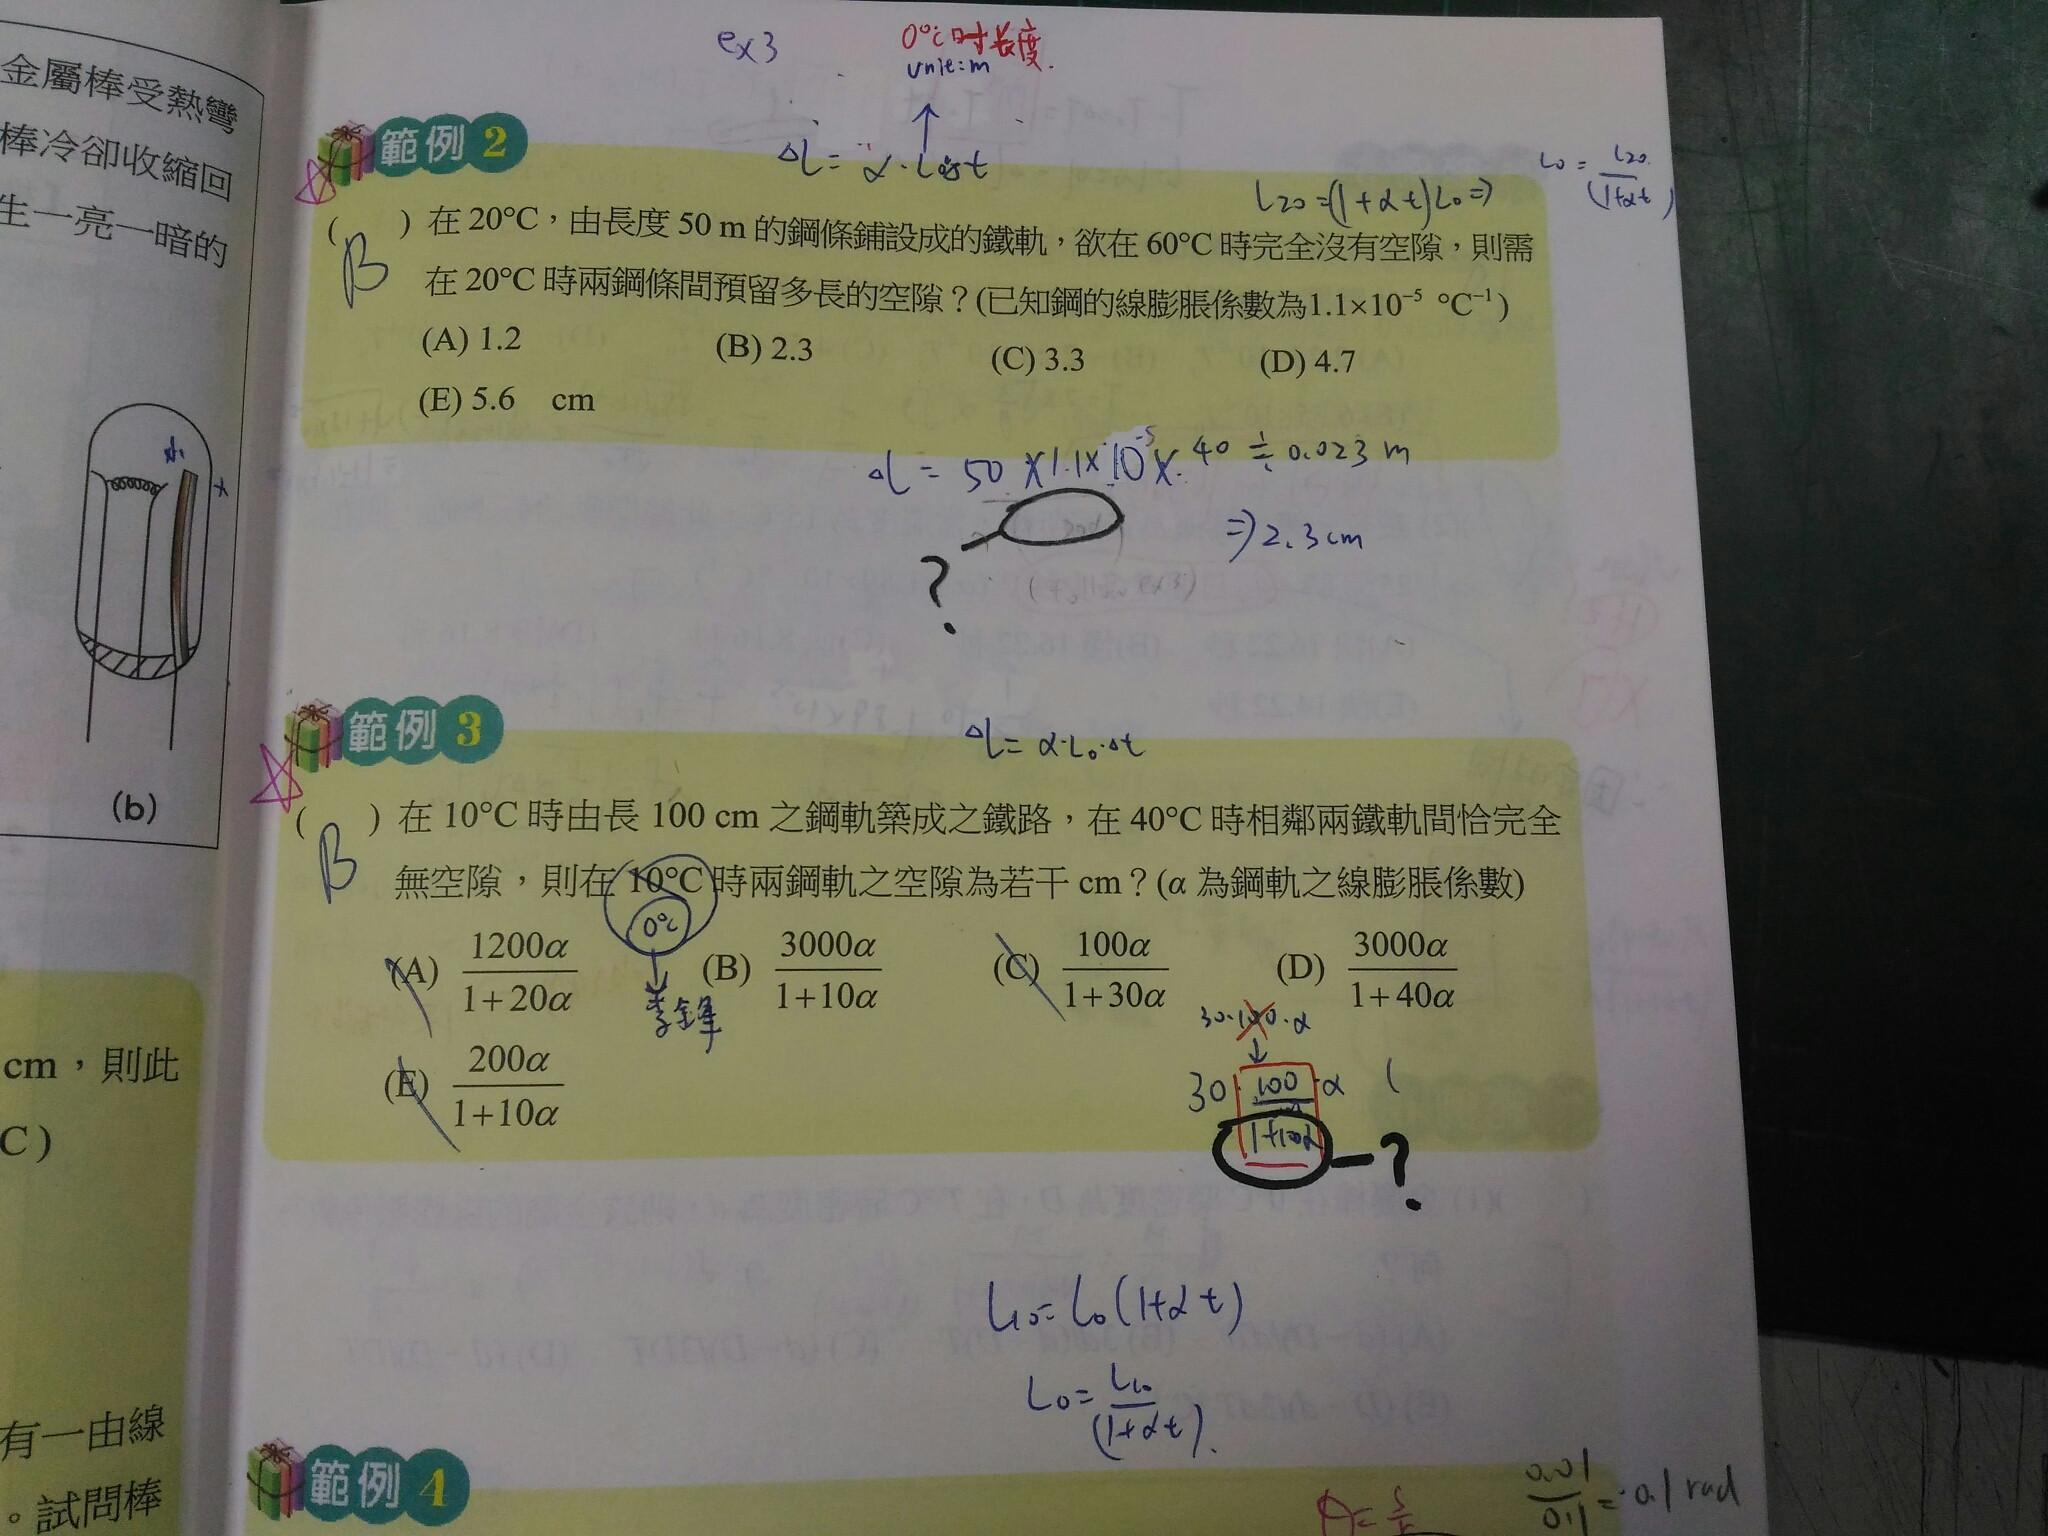 金屬棒受熱彎
棒冷卻收縮回
生一亮一暗的
(b)
cm，則此
C)
有一由線
。試問棒
ex3
0°C时长度.
unit:m
範例 2
L20=(1+αt)L0⇒
L0=L20/(1+αt)
( B ) 在 20°C，由長度 50 m 的鋼條鋪設成的鐵軌，欲在 60°C 時完全沒有空隙，則需
在 20°C 時兩鋼條間預留多長的空隙？(已知鋼的線膨脹係數為1.1×10⁻⁵ °C⁻¹)
(A) 1.2 (B) 2.3 (C) 3.3 (D) 4.7
(E) 5.6 cm
ΔL = 50 × 1.1 × 10⁻⁵ × 40 ≒ 0.023 m
⇒ 2.3 cm
?
範例 3
ΔL = α·L0·Δt
( B ) 在 10°C 時由長 100 cm 之鋼軌築成之鐵路，在 40°C 時相鄰兩鐵軌間恰完全
無空隙，則在 10°C 時兩鋼軌之空隙為若干 cm？(α 為鋼軌之線膨脹係數)
0°C
(A) 1200α/1+20α (B) 3000α/1+10α (C) 100α/1+30α (D) 3000α/1+40α
30·100·α
(E) 200α/1+10α
30·100/1+10α·α
?
L10=L0(1+αt)
L0=L10/(1+αt).
範例 4
0.01/0.1=0.1 rad